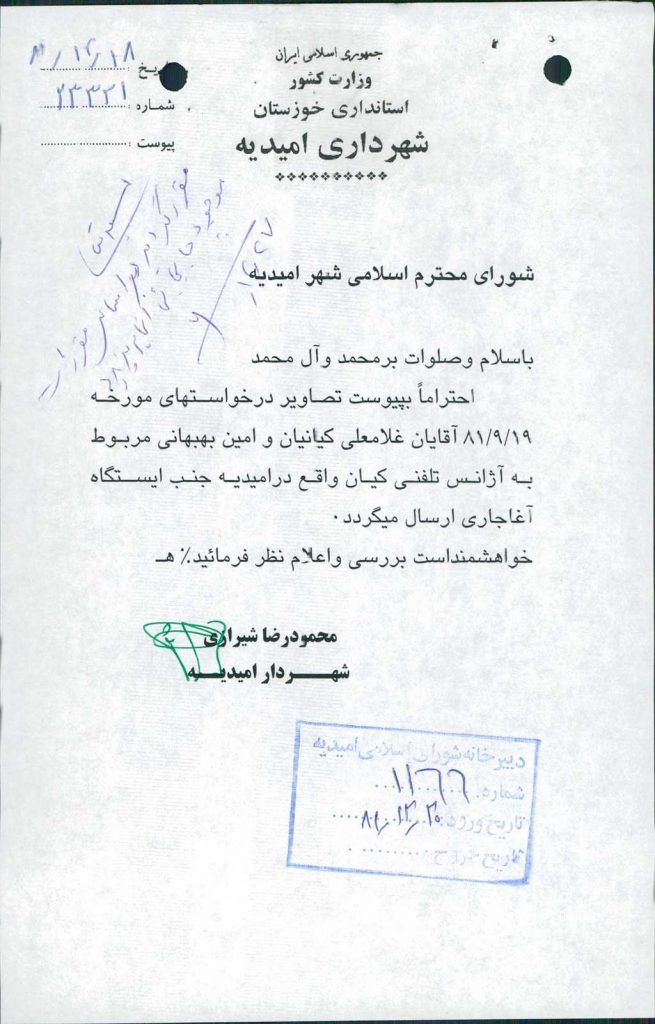 جمهوری اسلامی ایران
وزارت کشور
استانداری خوزستان
شهرداری امیدیه
تاریخ: ۸۱/۱۲/۱۸
شماره: ۲۳۳۲۱
پیوست:
شورای محترم اسلامی شهر امیدیه
باسلام وصلوات برمحمد وآل محمد
احتراماً بپیوست تصاویر درخواستهای مورخه
۸۱/۹/۱۹ آقایان غلامعلی کیانیان و امین بهبهانی مربوط
به آژانس تلفنی کیان واقع درامیدیه جنب ایستگاه
آغاجاری ارسال میگردد.
خواهشمنداست بررسی واعلام نظر فرمائید٪ هـ
محمودرضا شیرازی
شهردار امیدیه
دبیرخانه شورای اسلامی امیدیه
شماره: ۱۱۶۶
تاریخ ورود: ۸۱/۱۲/۲۰
تاریخ خروج: